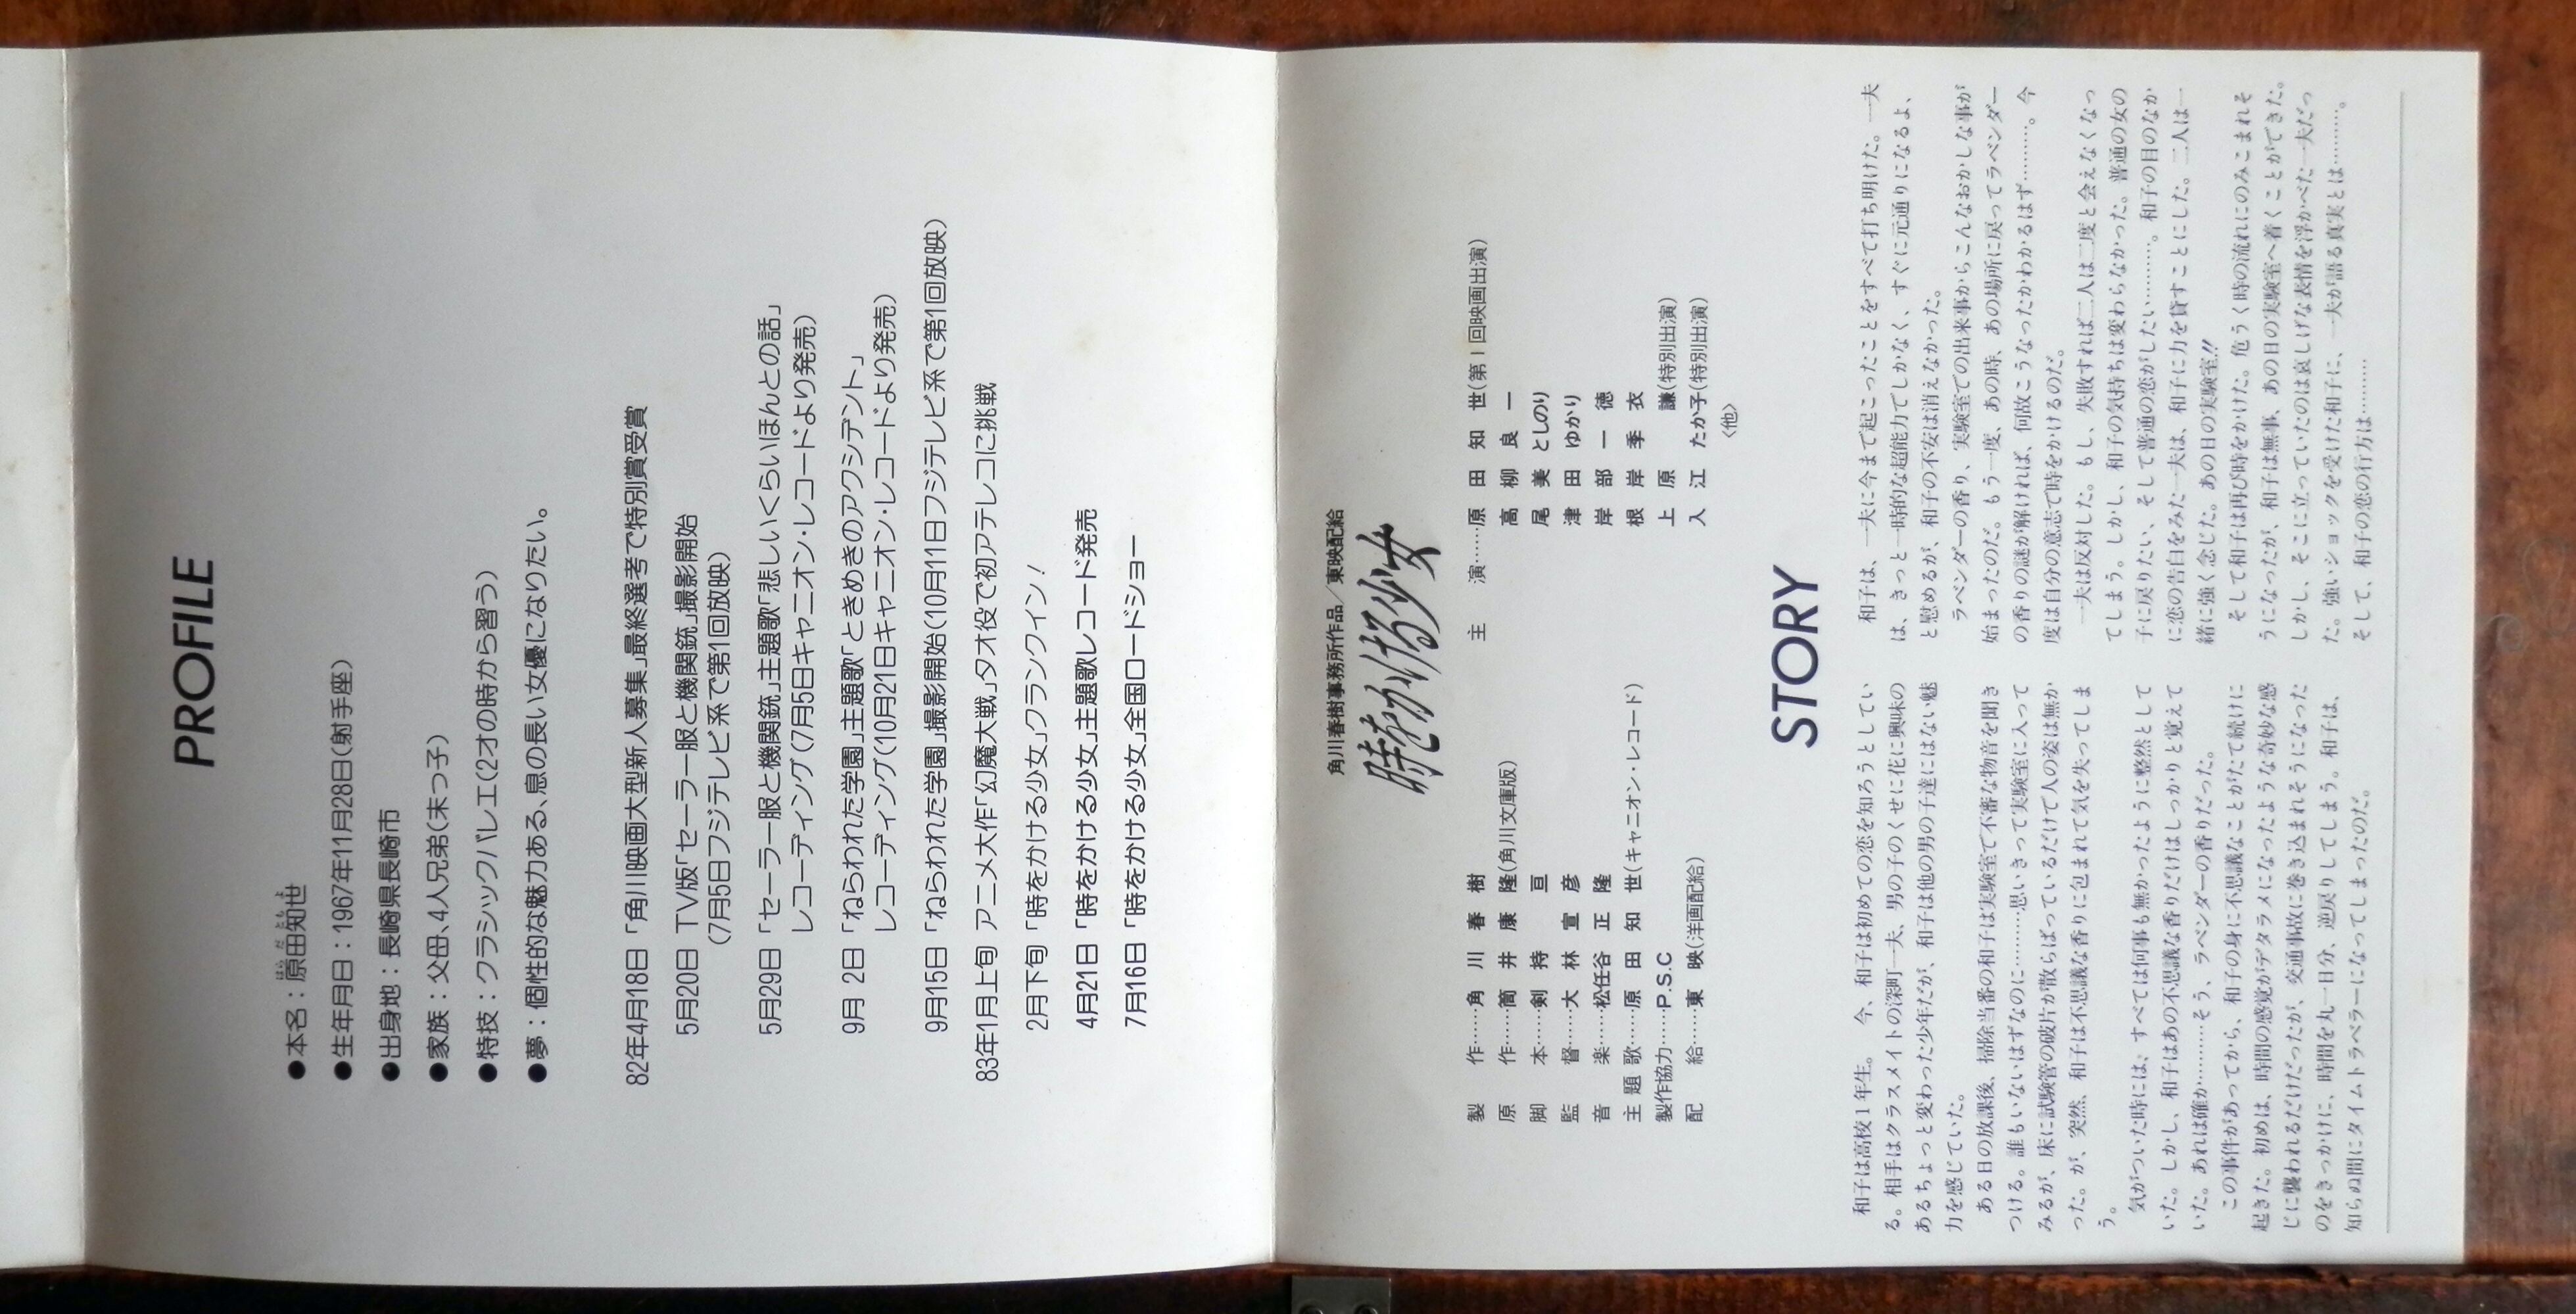 PROFILE
●本名：原田知世
はらだともよ
●生年月日：1967年11月28日(射手座)
●出身地：長崎県長崎市
●家族：父母、4人兄弟(末っ子)
●特技：クラシックバレエ(2才の時から習う)
●夢：個性的な魅力ある、息の長い女優になりたい。
82年4月18日「角川映画大型新人募集」最終選考で特別賞受賞
5月20日 TV版「セーラー服と機関銃」撮影開始
(7月5日フジテレビ系で第1回放映)
5月29日「セーラー服と機関銃」主題歌「悲しいくらいほんとの話」
レコーディング(7月5日キャニオン・レコードより発売)
9月 2日「ねらわれた学園」主題歌「ときめきのアクシデント」
レコーディング(10月21日キャニオン・レコードより発売)
9月15日「ねらわれた学園」撮影開始(10月11日フジテレビ系で第1回放映)
83年1月上旬 アニメ大作「幻魔大戦」タオ役で初アテレコに挑戦
2月下旬「時をかける少女」クランクイン！
4月21日「時をかける少女」主題歌レコード発売
7月16日「時をかける少女」全国ロードショー
角川春樹事務所作品／東映配給
時をかける少女
製作……角川春樹
原作……筒井康隆(角川文庫版)
脚本……剣持亘
監督……大林宣彦
音楽……松任谷正隆
主題歌……原田知世(キャニオン・レコード)
製作協力……P.S.C
配給……東映(洋画配給)
主演……原田知世(第1回映画出演)
高柳良一
尾美としのり
津田ゆかり
岸部一徳
根岸季衣
上原謙(特別出演)
入江たか子(特別出演)
〈他〉
STORY
和子は高校1年生。今、和子は初めての恋を知ろうとしてい
る。相手はクラスメイトの深町一夫、男の子のくせに花に興味の
あるちょっと変わった少年だが、和子は他の男の子達にはない魅
力を感じていた。
ある日の放課後、掃除当番の和子は実験室で不審な物音を聞き
つける。誰もいないはずなのに………思いきって実験室に入って
みるが、床に試験管の破片が散らばっているだけで人の姿は無か
った。が、突然、和子は不思議な香りに包まれて気を失ってしま
う。
気がついた時には、すべては何事も無かったように整然として
いた。しかし、和子はあの不思議な香りだけはしっかりと覚えて
いた。あれは確か………そう、ラベンダーの香りだった。
この事件があってから、和子の身に不思議なことがたて続けに
起きた。初めは、時間の感覚がデタラメになったような奇妙な感
じに襲われるだけだったが、交通事故に巻き込まれそうになった
のをきっかけに、時間を丸一日分、逆戻りしてしまう。和子は、
知らぬ間にタイムトラベラーになってしまったのだ。
和子は、一夫に今まで起こったことをすべて打ち明けた。一夫
は、きっと一時的な超能力でしかなく、すぐに元通りになるよ、
と慰めるが、和子の不安は消えなかった。
ラベンダーの香り、実験室での出来事からこんなおかしな事が
始まったのだ。もう一度、あの時、あの場所に戻ってラベンダー
の香りの謎が解ければ、何故こうなったかわかるはず………。今
度は自分の意志で時をかけるのだ。
一夫は反対した。もし、失敗すれば二人は二度と会えなくなっ
てしまう。しかし、和子の気持ちは変わらなかった。普通の女の
子に戻りたい、そして普通の恋がしたい………。和子の目のなか
に恋の告白をみた一夫は、和子に力を貸すことにした。二人は一
緒に強く念じた。あの日の実験室!!
そして和子は再び時をかけた。危うく時の流れにのみこまれそ
うになったが、和子は無事、あの日の実験室へ着くことができた。
しかし、そこに立っていたのは哀しげな表情を浮かべた一夫だっ
た。強いショックを受けた和子に、一夫が語る真実とは………。
そして、和子の恋の行方は………